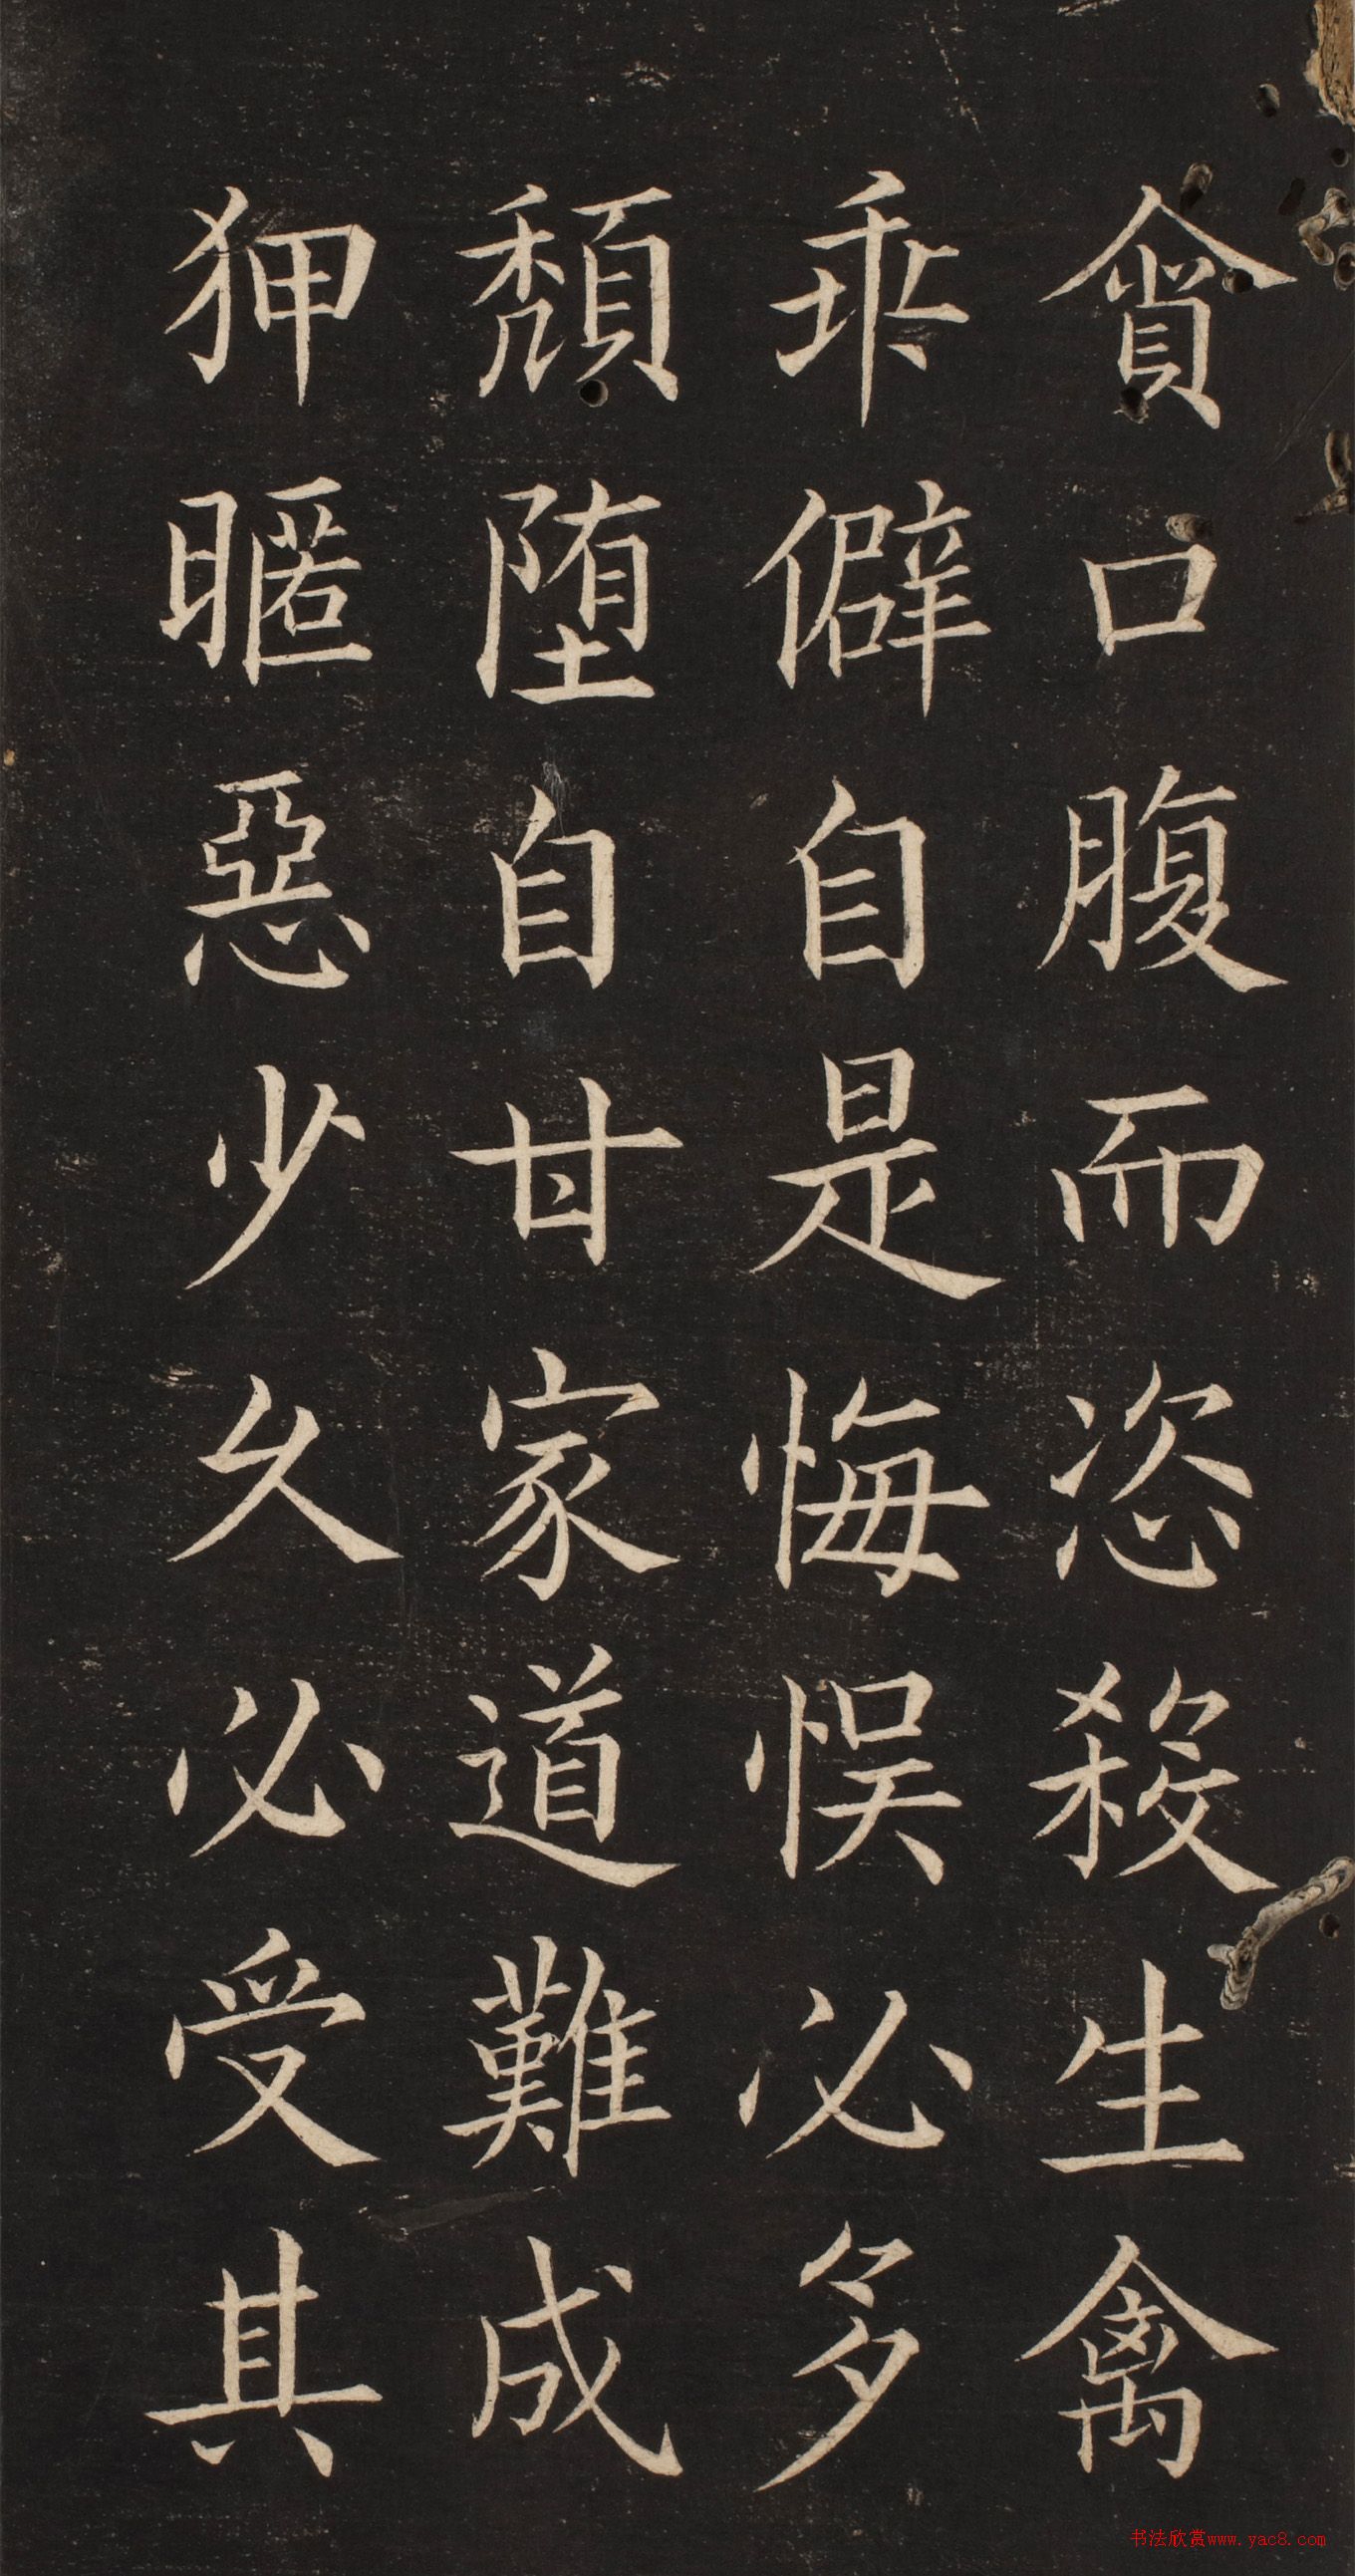 貪口腹而恣殺生禽
乖僻自是悔悞必多
頹堕自甘家道難成
狎暱惡少久必受其
书法欣赏www.yac8.com